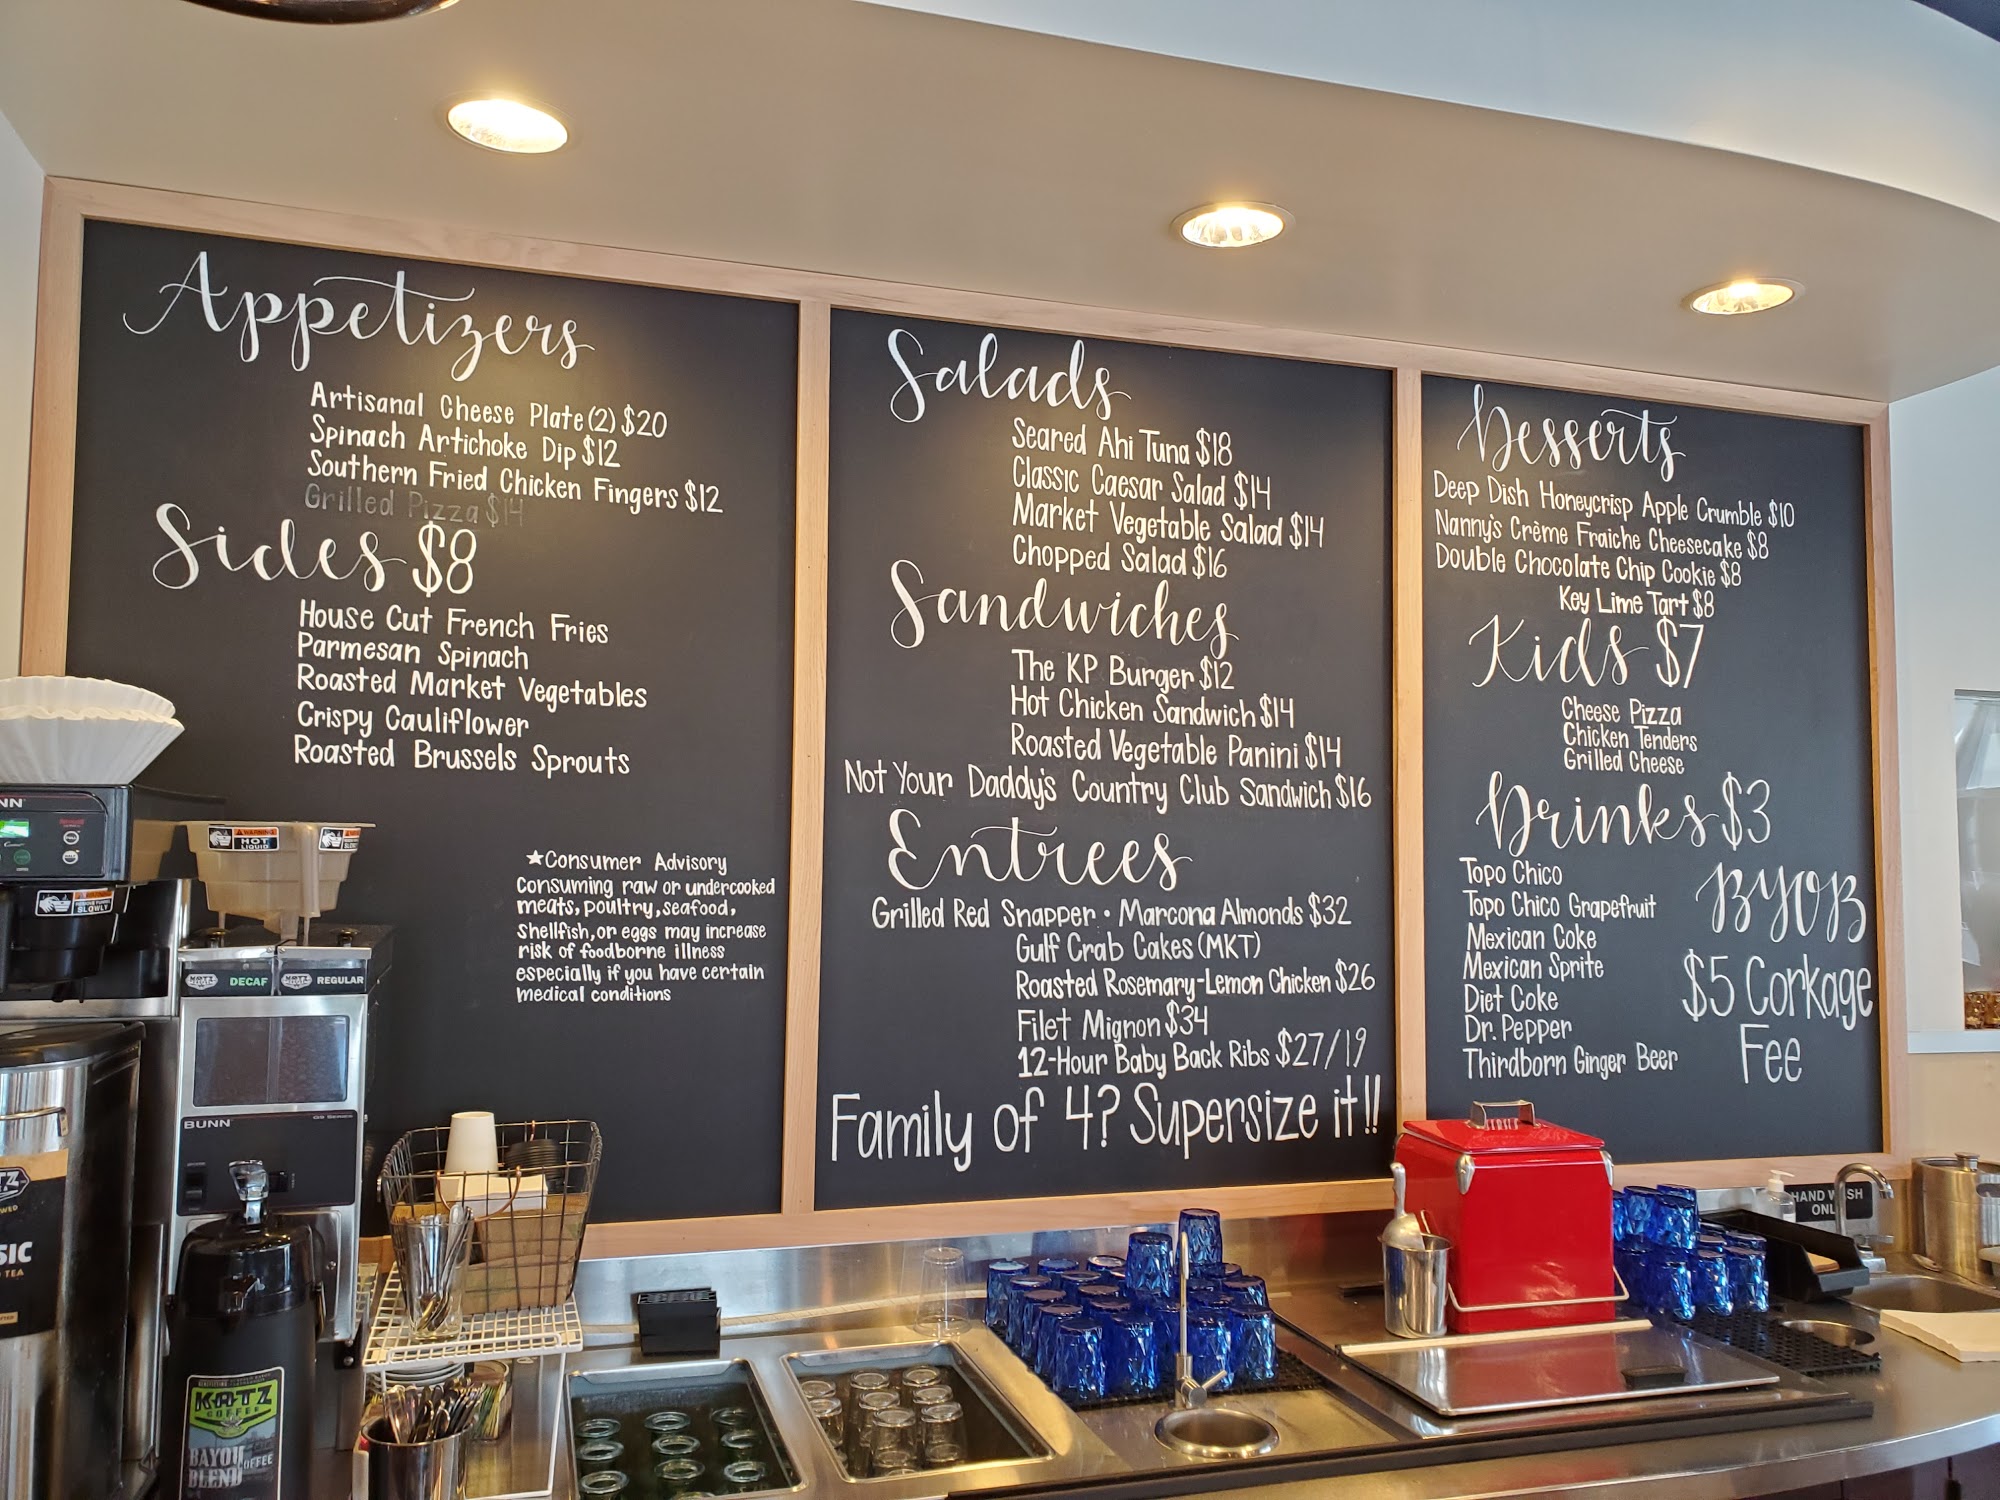 Appetizers
Artisanal Cheese Plate (2) $20
Spinach Artichoke Dip $12
Southern Fried Chicken Fingers $12
Grilled Pizza $14
Sides $8
House Cut French Fries
Parmesan Spinach
Roasted Market Vegetables
Crispy Cauliflower
Roasted Brussels Sprouts
★Consumer Advisory
Consuming raw or undercooked
meats, poultry, seafood,
shellfish, or eggs may increase
risk of foodborne illness
especially if you have certain
medical conditions
Salads
Seared Ahi Tuna $18
Classic Caesar Salad $14
Market Vegetable Salad $14
Chopped Salad $16
Sandwiches
The KP Burger $12
Hot Chicken Sandwich $14
Roasted Vegetable Panini $14
Not Your Daddy's Country Club Sandwich $16
Entrees
Grilled Red Snapper • Marcona Almonds $32
Gulf Crab Cakes (MKT)
Roasted Rosemary-Lemon Chicken $26
Filet Mignon $34
12-Hour Baby Back Ribs $27/19
Family of 4? Supersize it!!
Desserts
Deep Dish Honeycrisp Apple Crumble $10
Nanny's Crème Fraiche Cheesecake $8
Double Chocolate Chip Cookie $8
Key Lime Tart $8
Kids $7
Cheese Pizza
Chicken Tenders
Grilled Cheese
Drinks $3
Topo Chico
Topo Chico Grapefruit
Mexican Coke
Mexican Sprite
Diet Coke
Dr. Pepper
Thirdborn Ginger Beer
BYOB
$5 Corkage
Fee
WARNING
HOT
LIQUID
SLOWLY
DECAF
REGULAR
BUNN
KATZ
COFFEE
BAYOU
BLEND
COFFEE
SIC
TEA
HAND WASH
ONLY